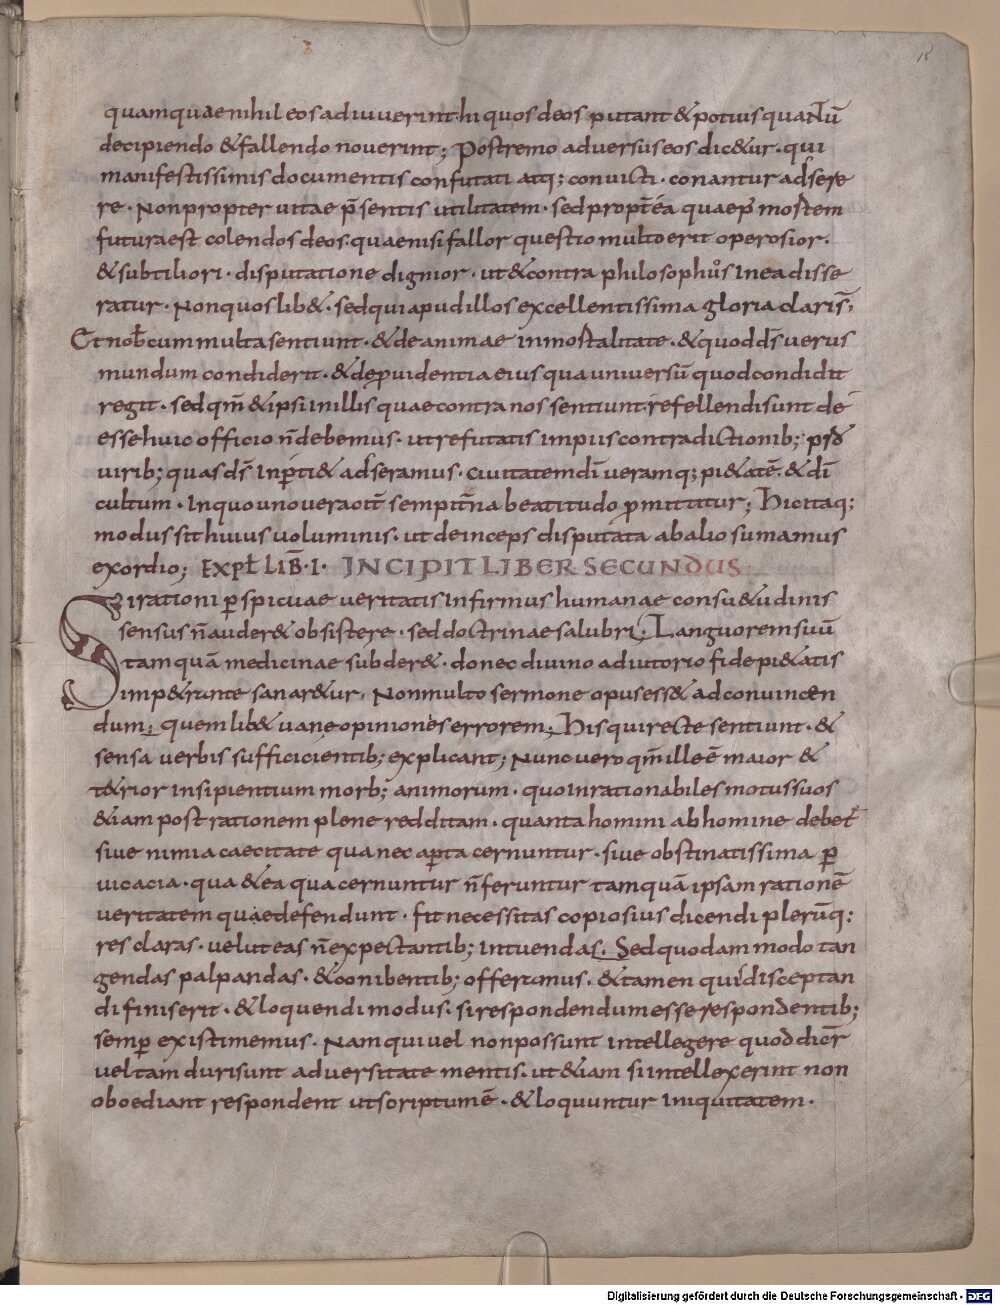 18
quamquaenihil eos adiuverint hi quos deos putant & potius quantū
decipiendo & fallendo noverint; Postremo adversus eos dic&ur · qui
manifestissimis documentis confutati atq; convicti · conantur adsere
re · Non propter vitae p̄sentis utilitatem · sed propt̄ea quae p̄ mortem
futura est colendos deos · quae nisi fallor questio multo erit operosior ·
& subtiliori · disputatione dignior · ut & contra philosophos in ea disse
ratur · Non quos lib& · sed qui apud illos excellentissima gloria claris̄;
Et nob̄cum multa sentiunt · & de animae inmortalitate · & quod d̄s verus
mundum condiderit · & de p̱videntia eius qua universū quod condidit
regit · sed qm̄ & ipsi in illis quae contra nos sentiunt refellendi sunt de
esse huic officio n̄ debemus · ut refutatis impiis contradictionib; p
virib; quas d̄s inp̄ti& adseramus · Civitatem dī veramq; pi&atē · & dī
cultum · In quo uno veracit̄ sempit̄na beatitudo p̱mittitur; Hic itaq;
modus sit huius voluminis · ut deinceps disputata ab alio sumamus
exordio; EXPŁ LIB̄ · I · INCIPIT LIBER SECUNDUS
Si rationi p̱spicuae veritatis infirmus humanae consu&udinis
sensus n̄ auder& obsistere · sed doctrinae salubri; Languorem suū
tamquā medicinae subder& · donec divino adiutorio fide pi&atis
imp&rante sanar&ur, Non multo sermone opus ess& ad convincen
dum; quemlib& vane opiniones errorem; His qui recte sentiunt · &
sensa verbis sufficicientib; explicant; Nunc vero qm̄ ille ē maior &
t&rior insipientium morb; animorum · quo inrationabiles motus suos
&iam post rationem plene redditam · quanta homini ab homine debet̄
sive nimia caecitate qua nec ap̱ta cernuntur · sive obstinatissima p̱
vicacia · qua & ea qua cernuntur n̄ feruntur tamquā ipsam rationē
veritatem quae defendunt · fit necessitas copiosius dicendi plerūq;
res claras · velut eas n̄ expectantib; intuendas · Sed quodam modo tan
gendas palpandas · & conibentib; offeramus · & tamen qui disceptan
di finis erit · & loquendi modus · si respondendum esse respondentib;
semp̱ existimemus · Nam qui vel non possunt intellegere quod dicr̄
vel tam duri sunt adversitate mentis · ut &iam si intellexerint non
oboediant respondent ut scriptum ē · & loquuntur iniquitatem ·
Digitalisierung gefördert durch die Deutsche Forschungsgemeinschaft - DFG